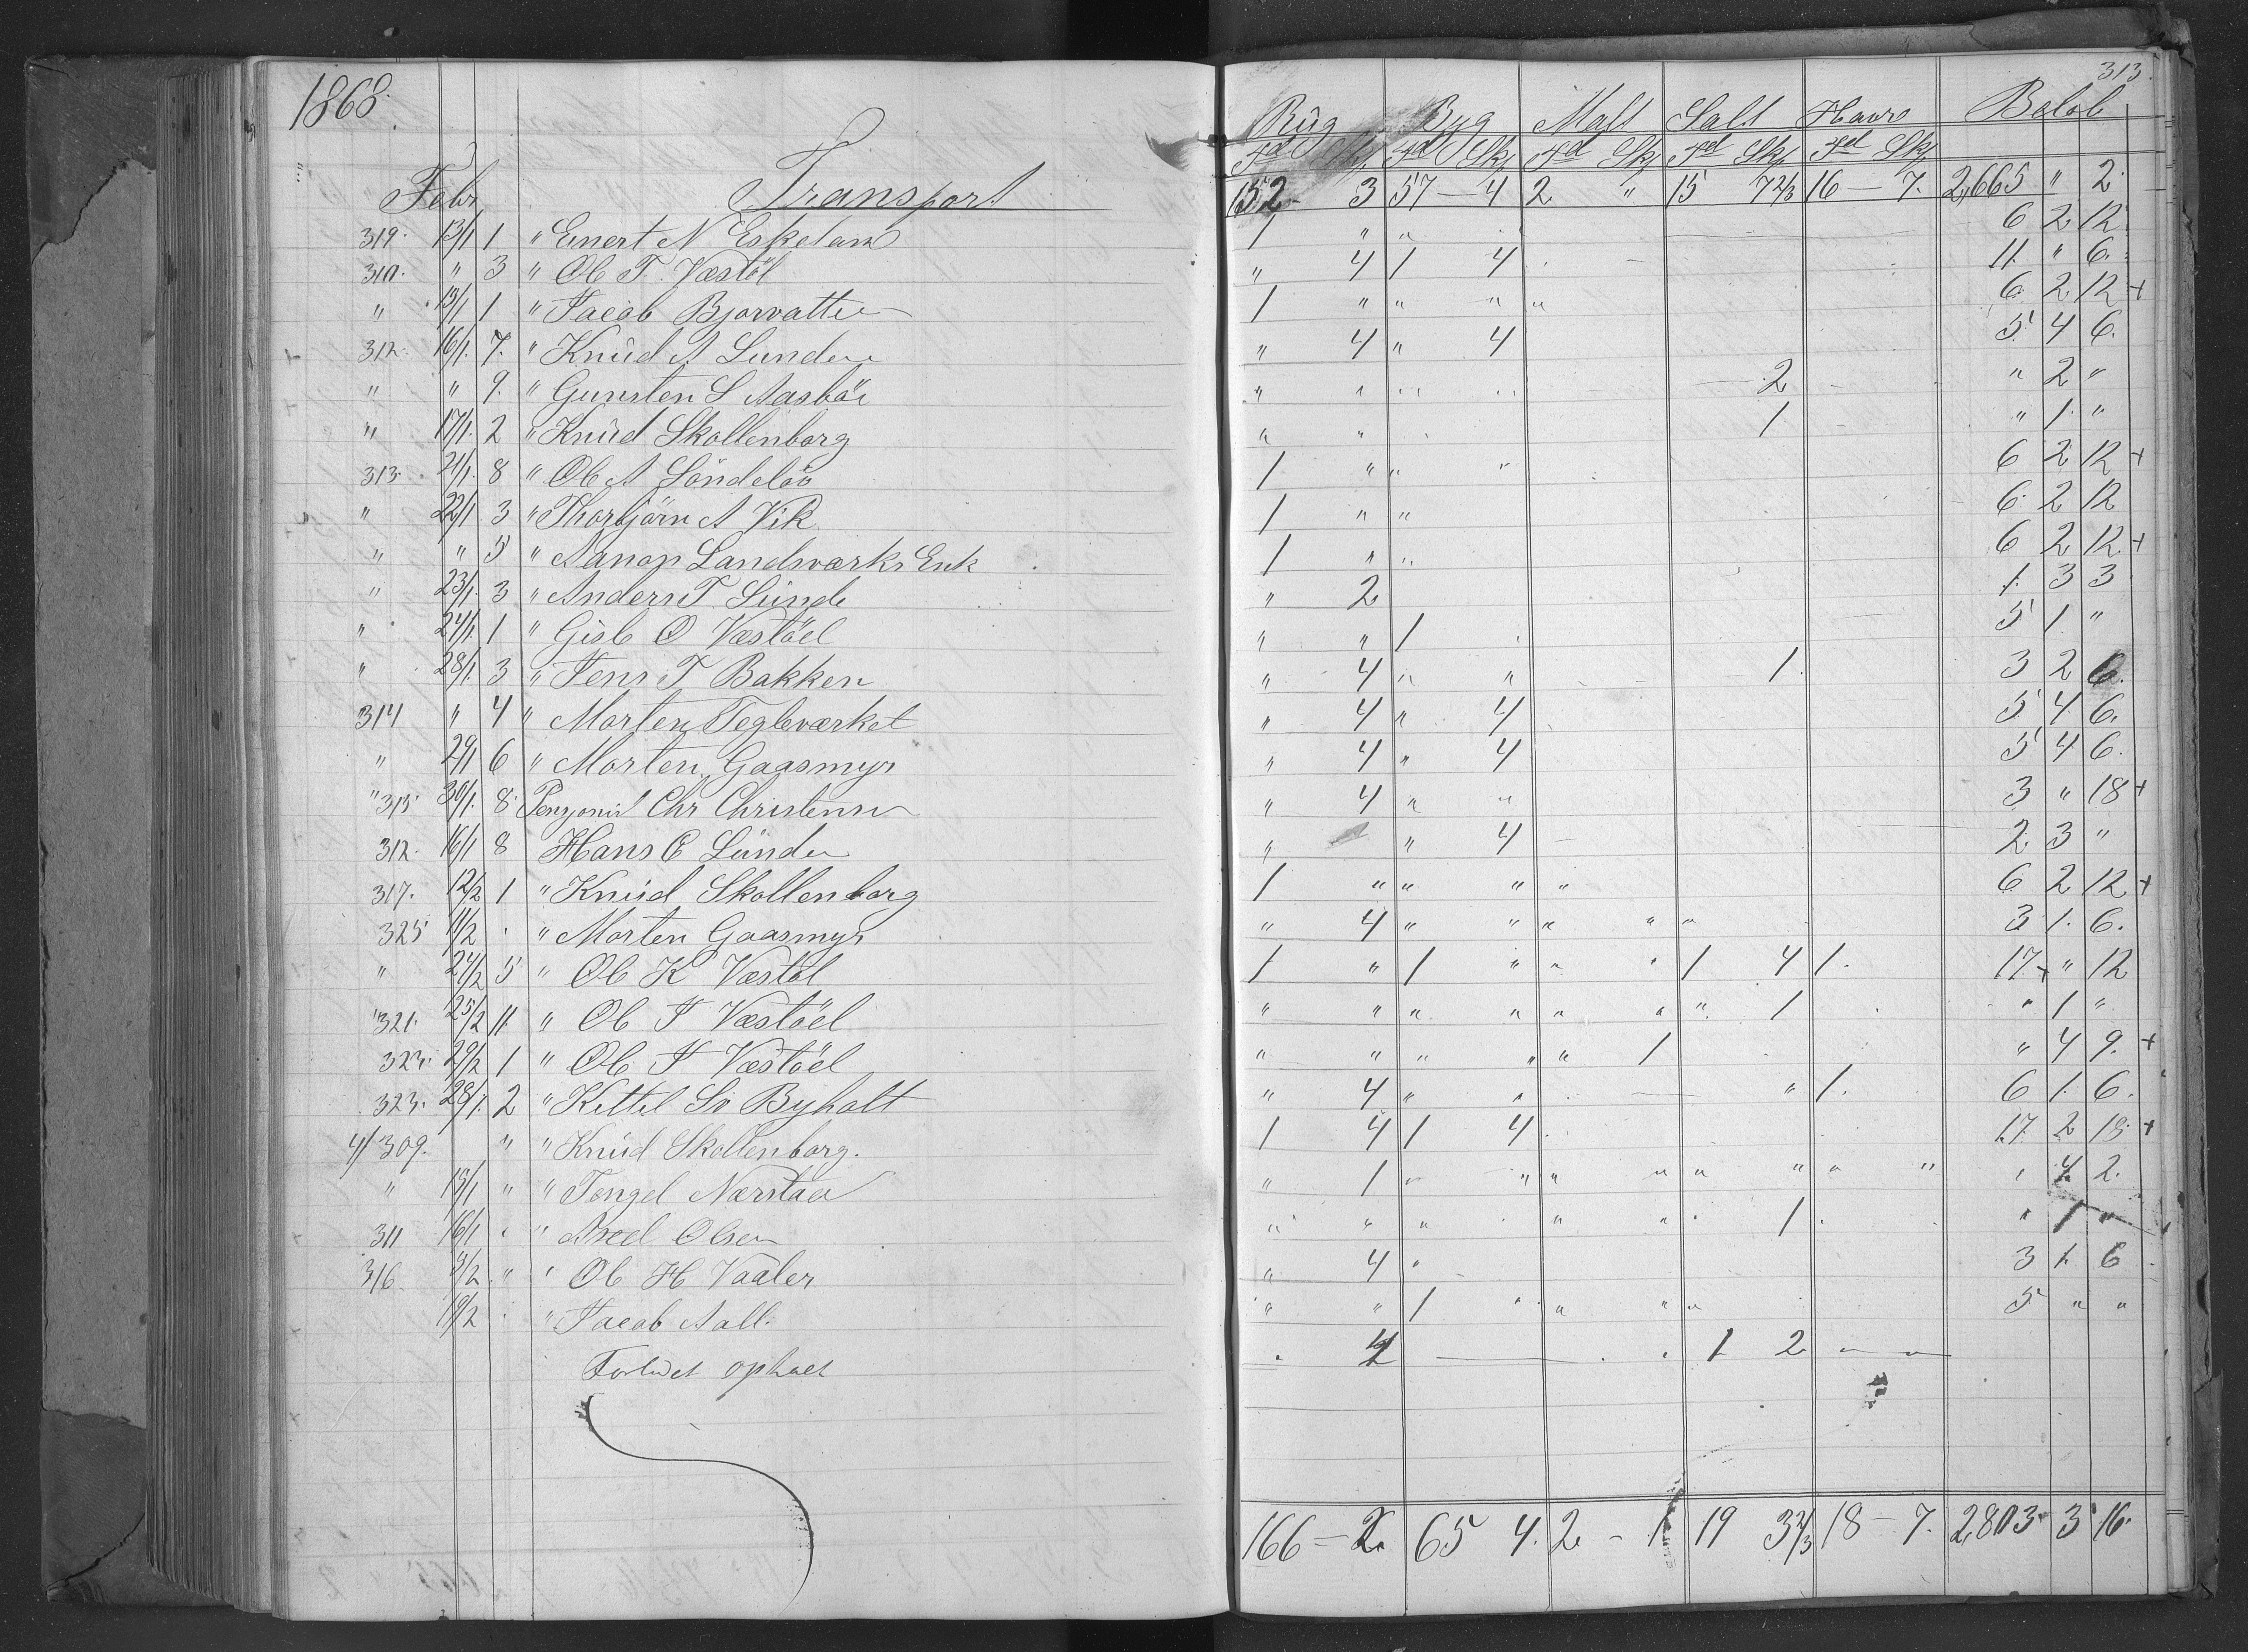 1868.
313.
Rüg Byg Malt Salt Havre Beløb
Td Skj Td Skj Td Skj Td Skj Td Skj
Febr Transport 152 - 3 57 - 4 2 " 15 7 2/3 16 - 7. 2,665 " 2
319. 13/1 1 " Evnert N Eskeland 1 " " 6 2 12
310. " 3 " Ole T. Vestöl " 4 1 4 11 " 6.
" 13/1 1 " Jacob Bjorvatten 1 " " " " 6 2 12 +
312. 16/1. 7. " Knüd A Lunden " 4 " 4 5 4 6.
" " 9. " Gunsten S Aasböe " " " " 2 " 2 "
" 17/1. 2 " Knüd Skollenborg " " 1 " 1. "
313. 21/1. 8 " Ole A Söndeløv 1 " " " 6 2 12 +
" 22/1 3 " Thorbjörn A Vik 1 " " 6 2 12
" " 5 " Aanon Landsværks Enk 1 " " 6 2 12 +
" 23/1. 3 " Anders T. Lünde " 2 1. 3 3
" 24/1. 1 " Gisle O Vestöel " " 1 5 1 "
" 28/1. 3 " Jens T Bakken " 4 " " 1. 3 2 6.
314 " 4 " Morten Tegleværket " 4 " 4 5 4 6.
" 29/1 6 " Morten Gaasmyr " 4 " 4 5 4 6.
" 315 30/1. 8 Penzonist Chr Christensen " 4 " " 3 " 18 +
312. 16/1 8 Hans E Lünden " " 4 2 3 "
317. 12/2 1 " Knüd Skollenborg 1 " " " " 6 2 12 +
325 11/2 " Morten Gaasmyr " 4 " " " " " 3 1. 6.
" 24/2 5 " Ole K Vestöl 1 " 1 " " " 1 4 1. 17 + " 12
321. 25/2 11. " Ole T Vestöel " " " " " " " 1 " 1 "
323. 29/2 1 " Ole T Vestöel " " " " " 1 " 4 9. +
323. 28/1. 2 " Kittil Sv Byholt " 4 " " " 1. 6 1. 6.
4/309. " " Knüd Skollenborg. 1 4 1 4 17 2 18 +
" 15/1 " " Tengel Nærstad " 1 " " " " " " " " " 4 2.
311 16/1 " " Axel Olsen " " " " " 1. " 1 "
316 3/2 " " Ole H Vaaler " 4 " 3 1. 6
19/2 " Jacob Aall. " " 1 " " " " 5 " "
Forlidet ophalt 4 1 2
166 - 2. 65 4. 2 - 1 19 3 2/3 18 - 7. 2,803 3 16.